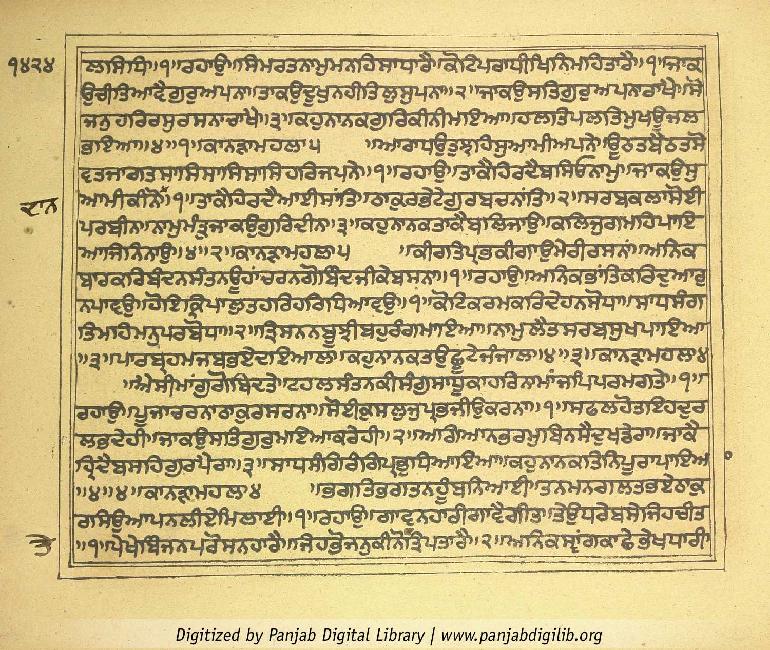 ੧੪੨੪
ਲਾਸੇਧਿ॥੧॥ਰਹਾਉ॥ਸਿਮਰਤਨਾਮੁਮਨਹਿਸਾਧਾਰੈ॥ਕੋਟਿਪਰਾਧੀਖਿਨਿਮਹਿਤਾਰੈ॥੧॥ਜਾਕ
ਉਚੀਤਿਆਵੈਗੁਰੁਅਪਨਾ॥ਤਾਕਉਦੂਖੁਨਹੀਤਿਲੁਸੁਪਨਾ॥੨॥ਜਾਕਉਸਤਿਗੁਰੁਅਪਨਾਰਾਖੈ॥ਸੋ
ਜਨੁਹਰਿਰਸੁਰਸਨਾਚਾਖੈ॥੩॥ਕਹੁਨਾਨਕਗੁਰਿਕੀਨੀਮਾਇਆ॥ਹਲਤਿਪਲਤਿਮੁਖਊਜਲ
ਭਾਇਆ॥੪॥੧॥ਕਾਨੜਾਮਹਲਾ੫ ॥ਆਰਾਧਉਤੁਝਹਿਸੁਆਮੀਅਪਨੇ॥ਊਠਤਬੈਠਤਸੋ
ਵਤਜਾਗਤਸਾਸਿਸਾਸਿਸਾਸਿਹਰਿਜਪਨੇ॥੧॥ਰਹਾਉ॥ਤਾਕੈਹਿਰਦੈਬਸਿਓਨਾਮੁ॥ਜਾਕਉਸੁ
ਆਮੀਕੀਨੋ ॥੧॥ਤਾਕੈਹਿਰਦੈਆਈਸਾਂਤਿ॥ਠਾਕੁਰਭੇਟੇਗੁਰਬਚਨਾਂਤਿ॥੨॥ਸਰਬਕਲਾਸੋਈ
ਦਾਨ
ਪਰਬੀਨ॥ਨਾਮਮੰਤ੍ਰੁਜਾਕਉਗੁਰਿਦੀਨ॥੩॥ਕਹੁਨਾਨਕਤਾਕੈਬਲਿਜਾਉ॥ਕਲਿਜੁਗਮਹਿਪਾਇ
ਆਜਿਨਿਨਾਉ॥੪॥੨॥ਕਾਨੜਾਮਹਲਾ੫ ॥ਕੀਰਤਿਪ੍ਰਭਕੀਗਾਉਮੇਰੀਰਸਨਾਂ॥ਅਨਿਕ
ਬਾਰਕਰਿਬੰਦਨਸੰਤਨਊਹਾਂਚਰਨਗੋਬਿੰਦਜੀਕੇਬਸਨਾ॥੧॥ਰਹਾਉ॥ਅਨਿਕਭਾਂਤਿਕਰਿਦੁਆਰੁ
ਨਪਾਵਉ॥ਹੋਇਕ੍ਰਿਪਾਲੁਤਹਰਿਹਰਿਧਿਆਵਉ॥੧॥ਕੋਟਿਕਰਮਕਰਿਦੇਹਨਸੋਧਾ॥ਸਾਧਸੰਗ
ਤਿਮਹਿਮਨੁਪਰਬੋਧਾ॥੨॥ਤ੍ਰਿਸਨਨਬੂਝੀਬਹੁਰੰਗਮਾਇਆ॥ਨਾਮੁਲੈਤਸਰਬਸੁਖਪਾਇਆ
॥੩॥ਪਾਰਬ੍ਰਹਮਜਬਭਏਦਇਆਲ॥ਕਹੁਨਾਨਕਤਉਛੂਟੇਜੰਜਾਲ॥੪॥੩॥ਕਾਨੜਾਮਹਲਾ੪
॥ਐਸੀਮਾਂਗੁਗੋਬਿਦਤੇ॥ਟਹਲਸੰਤਨਕੀਸੰਗੁਸਾਧੂਕਾਹਰਿਨਾਮਾਂਜਪਿਪਰਮਗਤੇ॥੧॥
ਰਹਾਉ॥ਪੂਜਾਚਰਨਾਠਾਕੁਰਸਰਨਾ॥ਸੋਈਕੁਸਲੁਜੁਪ੍ਰਭਜੀਉਕਰਨਾ॥੧॥ਸਫਲਹੋਤਇਹਦੁਰ
ਲਭਦੇਹੀ॥ਜਾਕਉਸਤਿਗੁਰੁਮਇਆਕਰੇਹੀ॥੨॥ਅਗਿਆਨਭਰਮੁਬਿਨਸੈਦੁਖਡੇਰਾ॥ਜਾਕੈ
ਹ੍ਰਿਦੈਬਸਹਿਗੁਰਪੈਰਾ॥੩॥ਸਾਧਸੰਗਿਰੰਗਿਪ੍ਰਭੁਧਿਆਇਆ॥ਕਹੁਨਾਨਕਤਿਨਿਪੂਰਾਪਾਇਆ
॥੪॥੪॥ਕਾਨੜਾਮਹਲਾ੪ ॥ਭਗਤਿਭਗਤਨਹੂੰਬਨਿਆਈ॥ਤਨਮਨਗਲਤਭਏਠਾਕੁ
ਰਸਿਉਆਪਨਲੀਏਮਿਲਾਈ॥੧॥ਰਹਾਉ॥ਗਾਵਨਹਾਰੀਗਾਵੈਗੀਤ॥ਤੇਉਧਰੇਬਸੇਜਿਹਚੀਤ
॥੧॥ਪੇਖੇਬਿੰਜਨਪਰੋਸਨਹਾਰੈ॥ਜਿਹਭੋਜਨੁਕੀਨੋਤੇਤ੍ਰਿਪਤਾਰੈ॥੨॥ਅਨਿਕਸ੍ਵਾਂਗਕਾਛੇਭੇਖਧਾਰੀ
Digitized by Panjab Digital Library | www.panjabdigilib.org